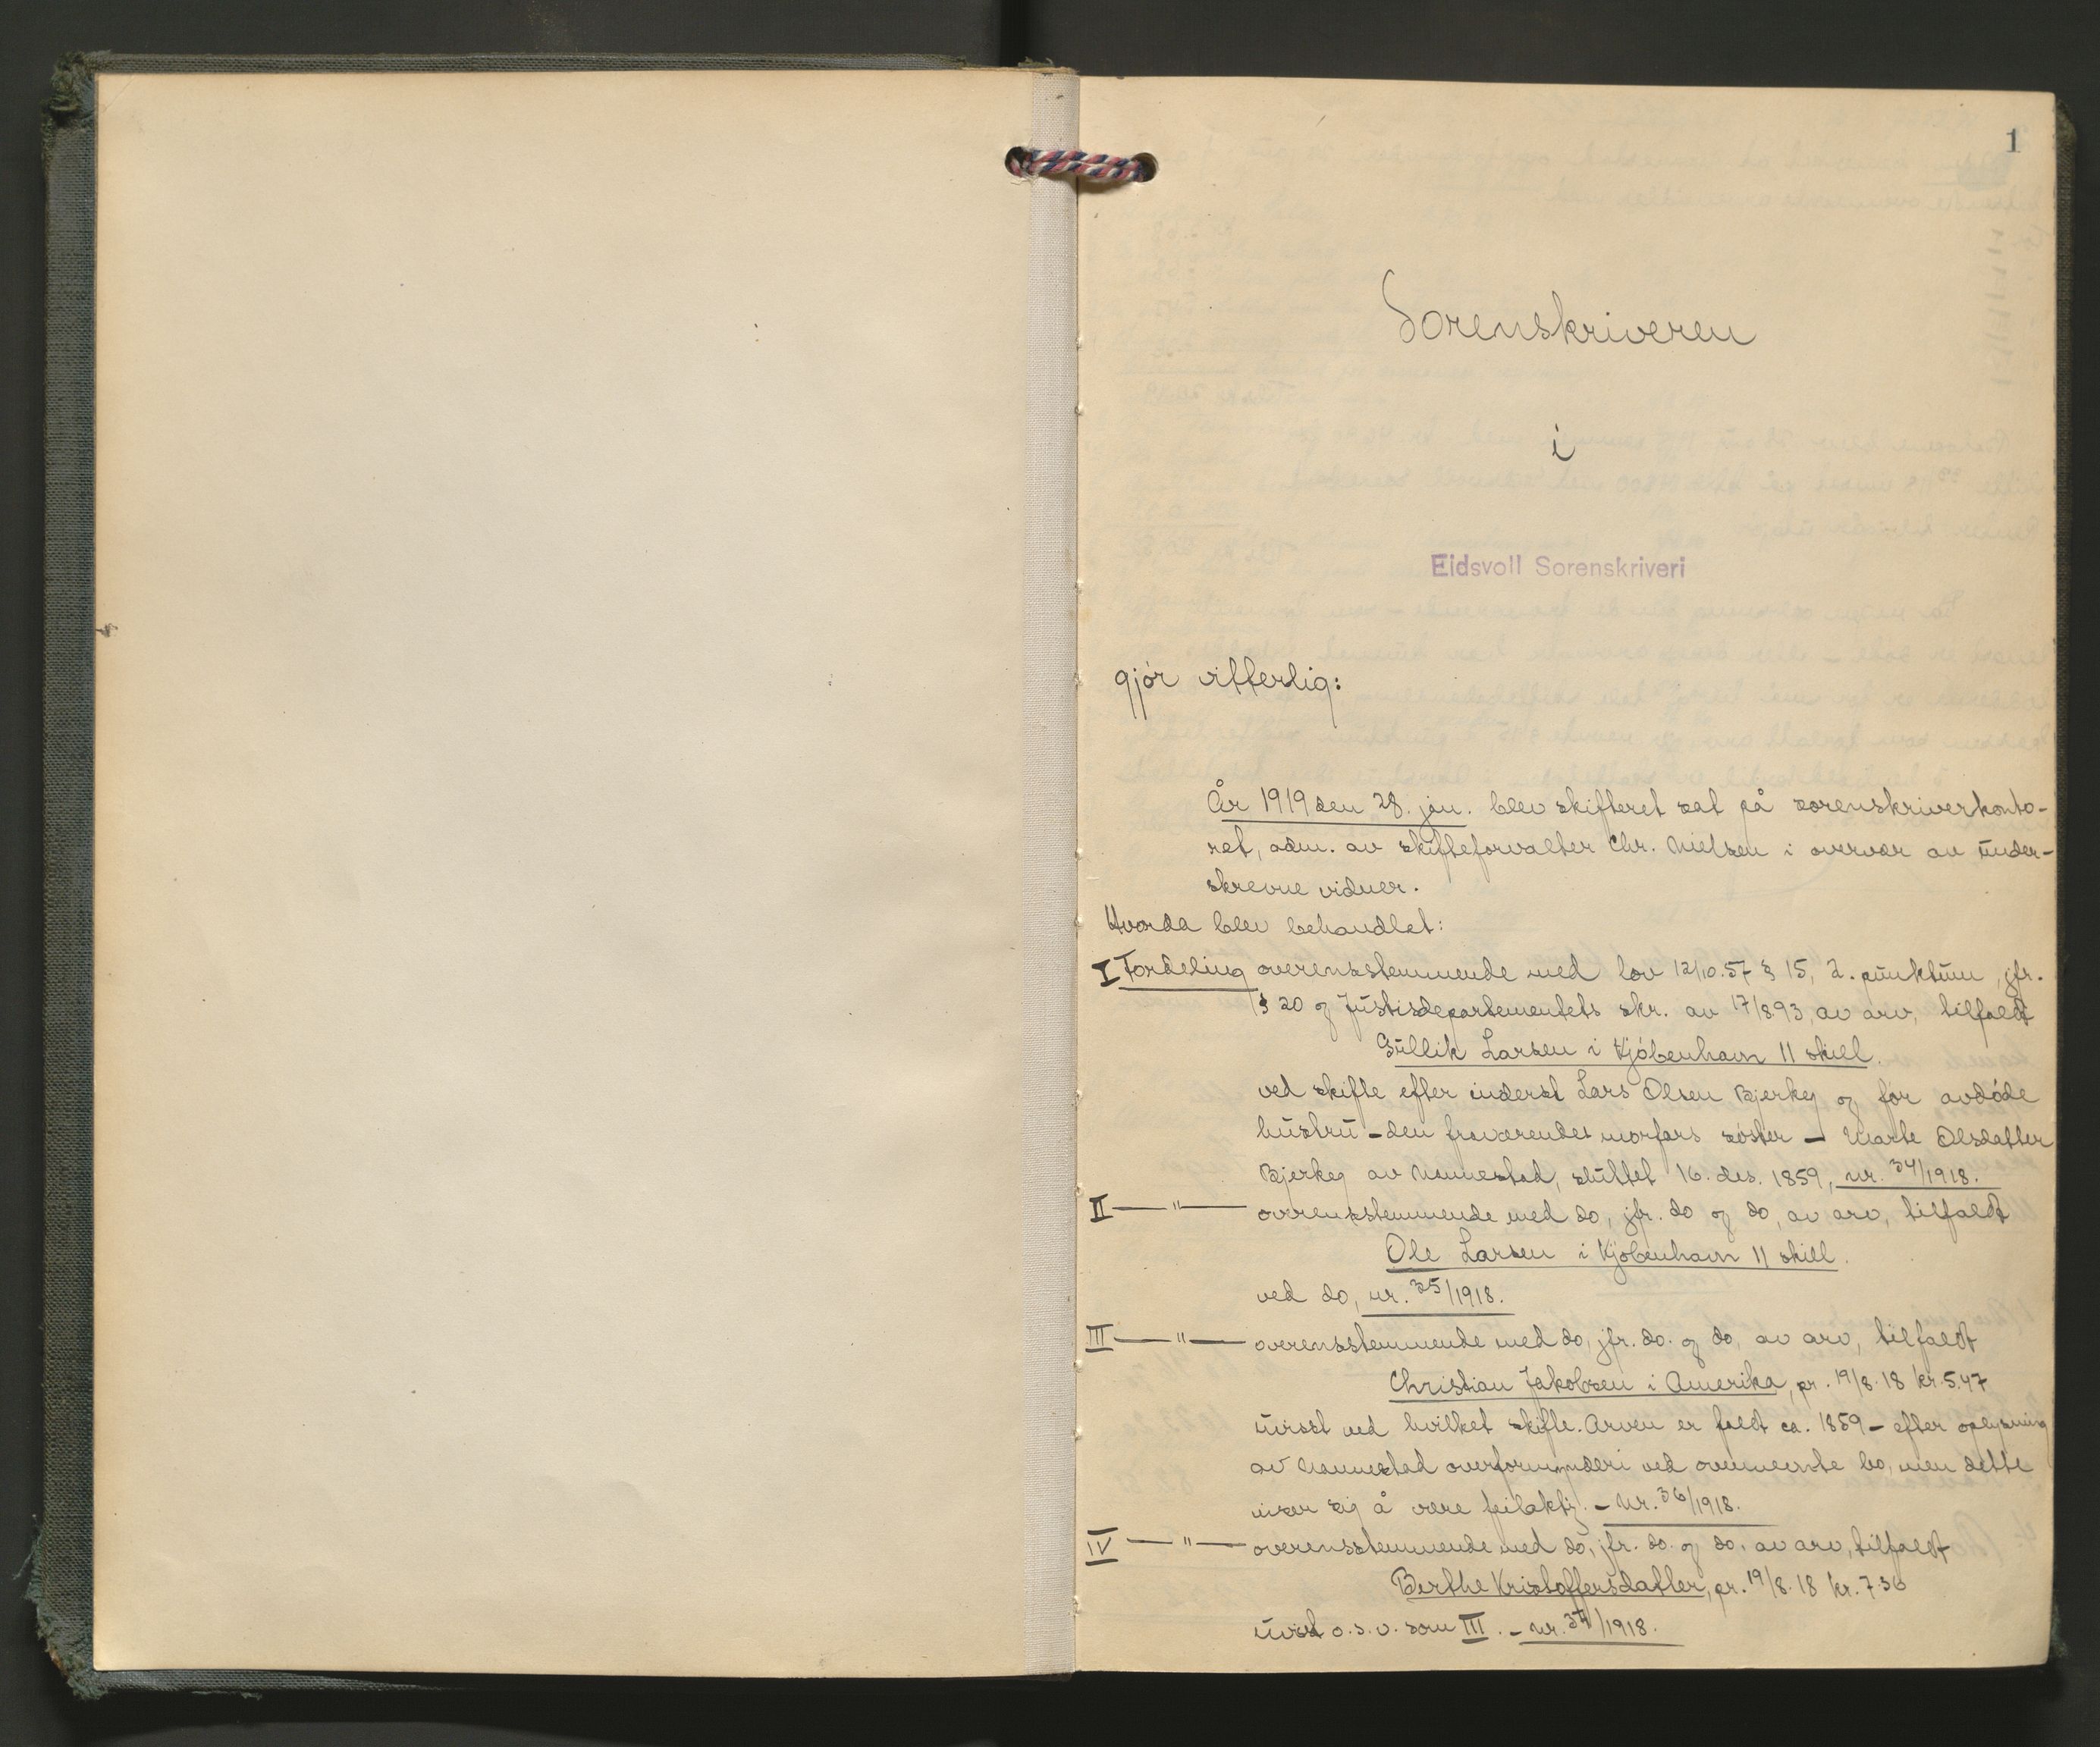 1
Sorenskriveren
i
Eidsvoll Sorenskriveri
gjør vitterlig:
År 1919 den 28. jan. blev skifteret sat på sorenskriverkonto-
ret, adm. av skifteforvalter Chr. Nielsen i overvær av under-
skrevne vidner.
Hvorda blev behandlet:
I Fordeling overensstemmende med lov 12/10.57 § 15, 2. punktum, jfr.
§ 20 og Justisdepartementets skr. av 17/8.93, av arv, tilfaldt
Gullik Larsen i Kjøbenhavn 11 skill.
ved skifte efter inderst Lars Olsen Bjerkeg og før avdøde
hustru - den fraværendes morfars søster - Marte Olsdatter
Bjerkeg av Nannestad, sluttet 16. des. 1859, nr. 34/1918.
II — " — overensstemmende med do, jfr. do og do, av arv, tilfaldt
Ole Larsen i Kjøbenhavn 11 skill.
ved do, nr. 35/1918.
III — " — overensstemmende med do, jfr. do. og do, av arv, tilfaldt
Christian Jakobsen i Amerika, pr. 19/8.18 kr. 5.47
uvisst ved hvilket skifte. Arven er faldt ca. 1859 - efter oplysning
av Nannestad overformynderi ved ovennevnte bo, men dette
viser sig å være feilaktig. - Nr. 36/1918.
IV — " — overensstemmende med do, jfr. do. og do. av arv, tilfaldt
Berthe Kristoffersdatter, pr. 19/8.18 kr. 7.36
uvist o.s.v. som III. - nr. /1918.